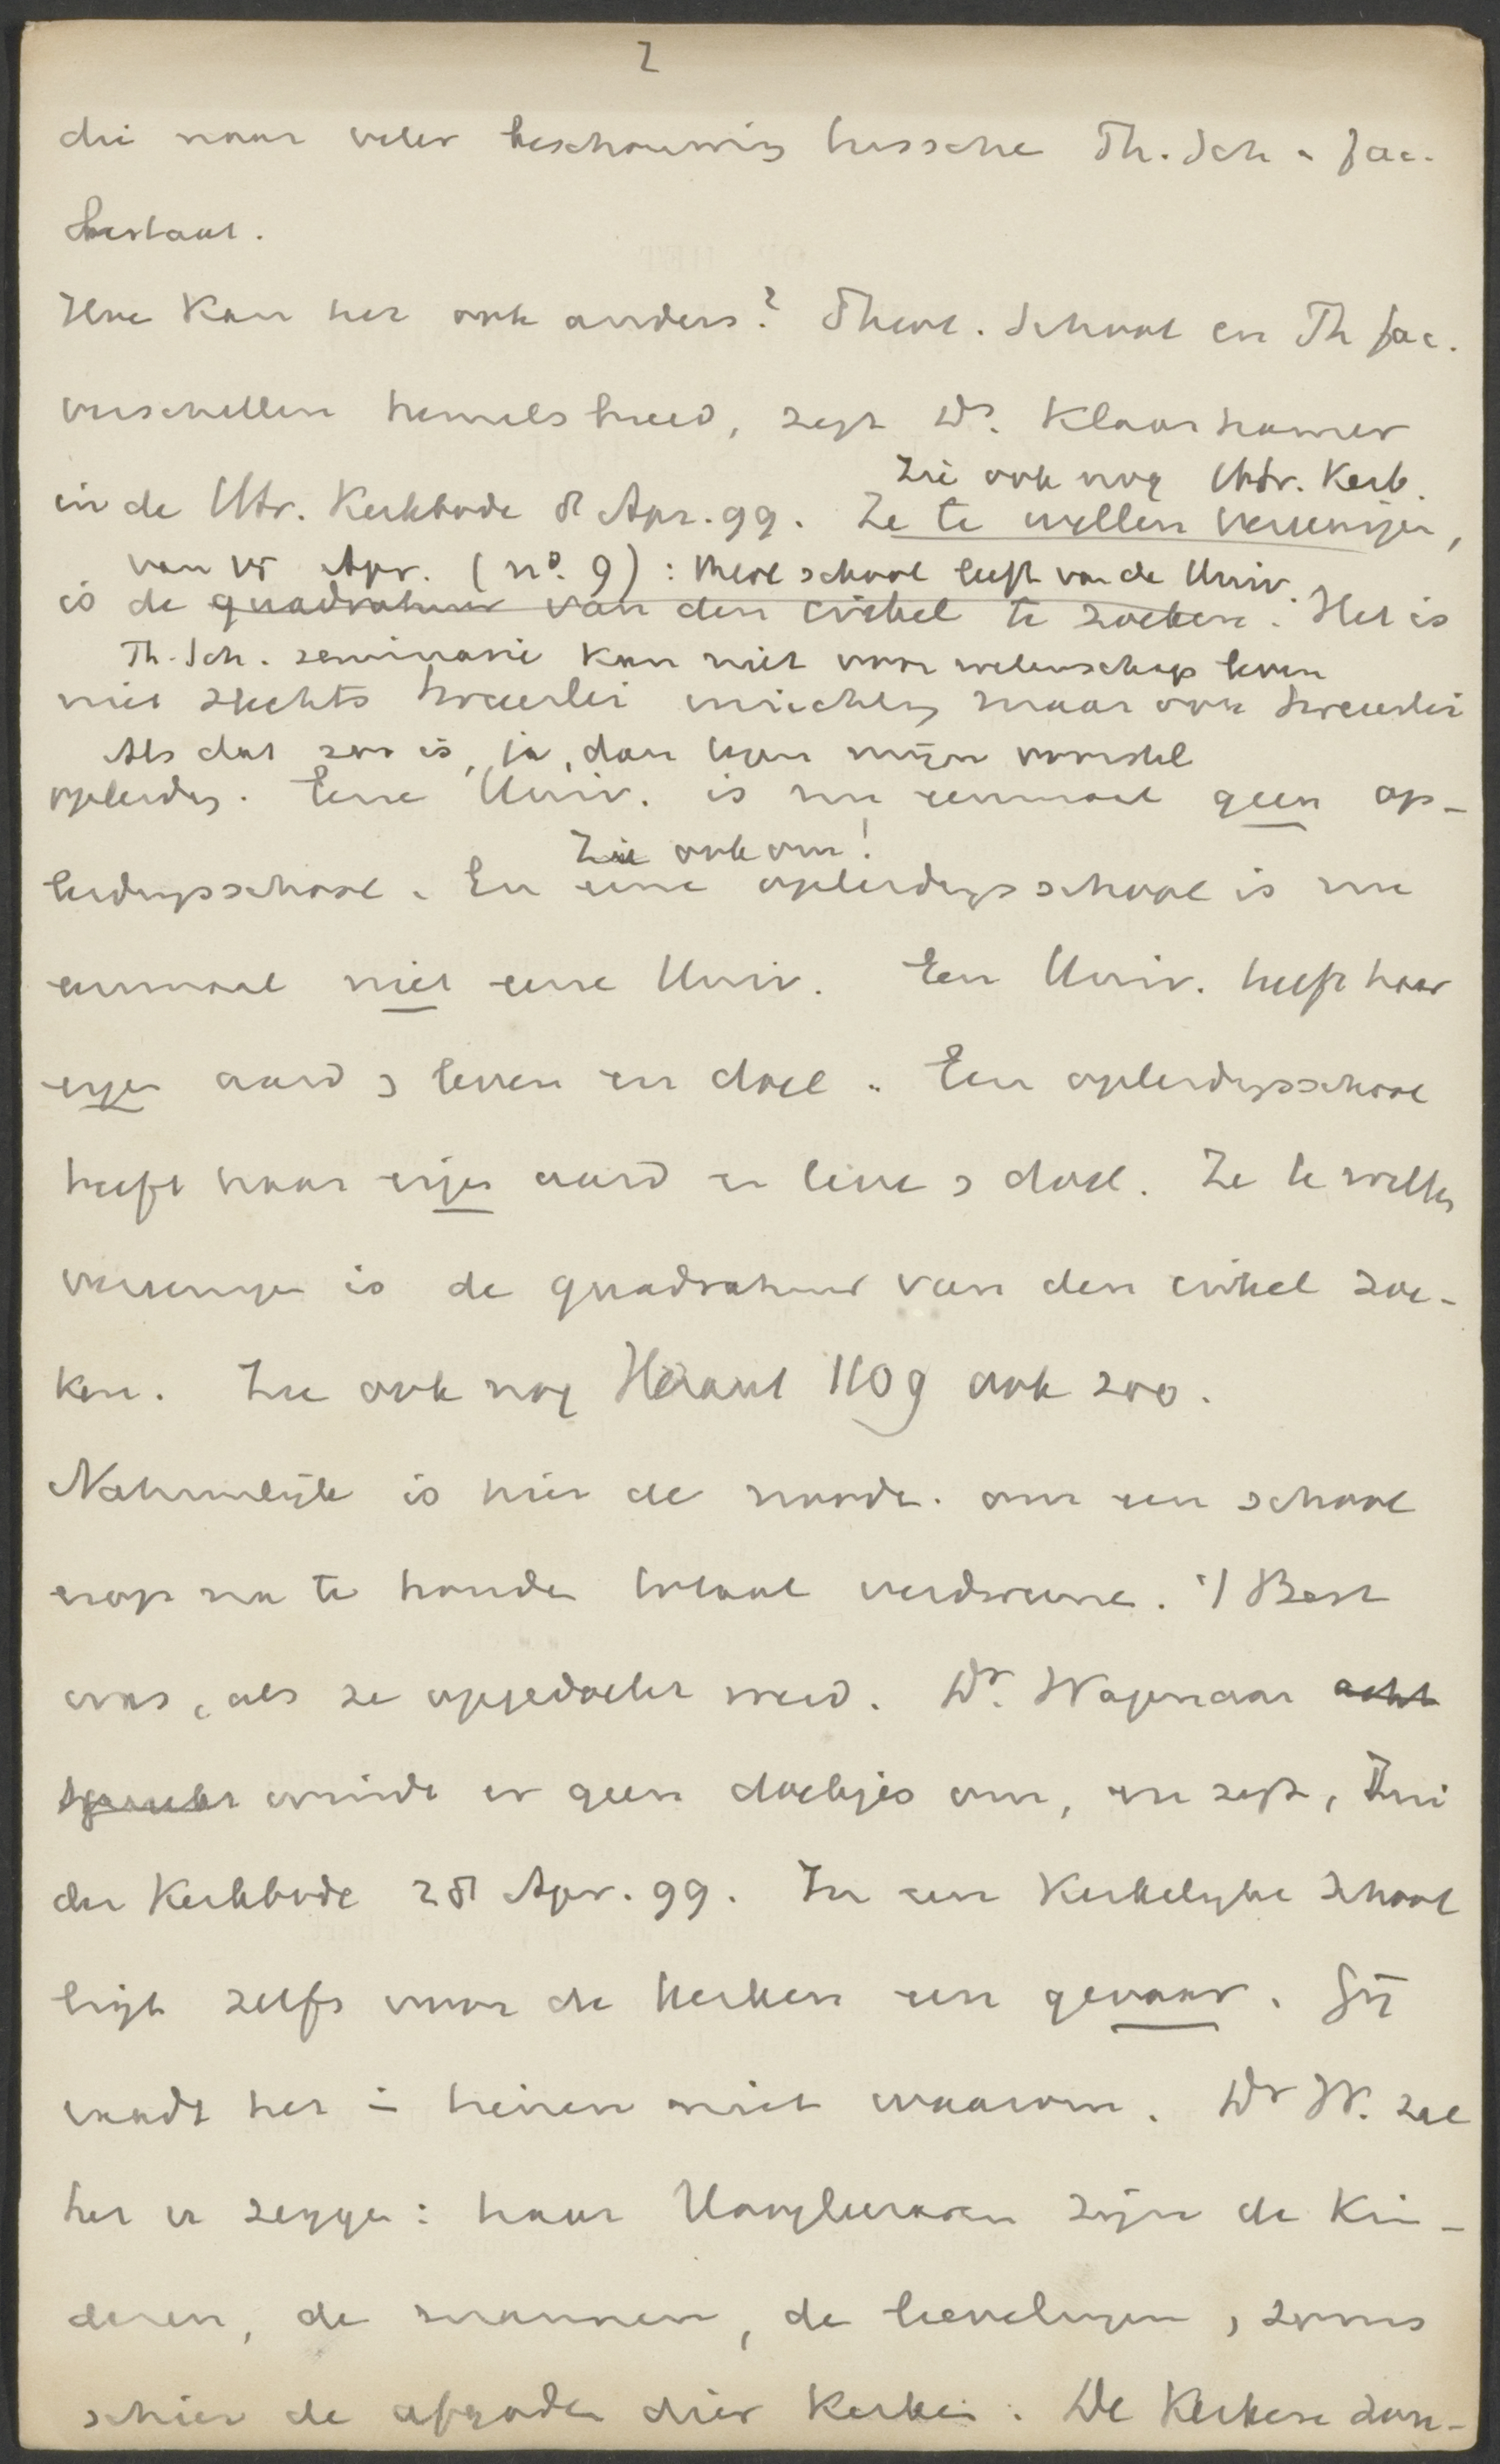 2
die naar veler beschouwing tussche Th. Sch & fac.
bestaat.
Hoe kan het ook anders? Theol. School en Th fac.
verschillen hemelsbreed, zegt Dr. Klaarhamer
Zie ook nog Utr. Kerb.
in de Utr. Kerkbode 8 Apr. 99. Ze te willen vereenigen,
van 15 Apr. (no. 9): theol school leeft van de Univ.
is de quadratuur van den cirkel te zoeken. Het is
Th. Sch. seminarie kan niet voor wetenschap leven
niet slechts tweeërlei inrichting maar ook tweeërlei
Als dat zoo is, ja, dan mijn voorstel
opleiding. Eene Univ. is nu eenmaal geen op-
Zie ook om!
leidingsschool. En eene opleidingsschool is nu
eenmaal niet eene Univ. Een Univ. heeft haar
eigen aard, leven en doel. Een opleidingsschool
heeft haar eigen aard en leven, doel. Ze te willen
vereenigen is de quadratuur van den cirkel zoe-
ken. Zie ook nog Heraut 1109 ook zoo.
Natuurlijk is hier de noodz. om een school
erop na te houden totaal verdwenen. 't Best
was, als ze opgedoekt werd. Dr. Wagenaar acht
windt er geen doekjes om, en zegt, Zui
der Kerkbode 28 Apr. 99. In een kerkelijke School
ligt zelfs voor de kerken een gevaar. Gij
raadt het in heinen niet waarom. Dr W. zal
het u zeggen: haar Hoogleeraren zijn de kin-
deren, de mannen, de lievelingen, soms
schier de afgoden dier kerken. De Kerken dan-